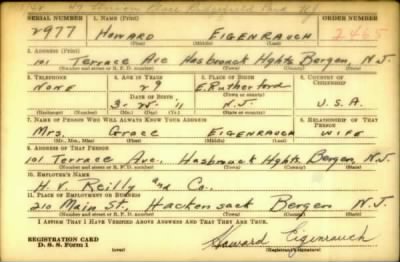 47 Place Ridgefield Park NJ
SERIAL NUMBER 1. NAME (Print) ORDER NUMBER
2977 HOWARD EIGENRAUCH 2465
(First) (Middle) (Last)
2. ADDRESS (Print)
101 Terrace Ave Hasbrouck Hghts. Bergen, N.J.
(Number and street or R. F. D. number) (Town) (County) (State)
3. TELEPHONE 4. AGE IN YEARS 5. PLACE OF BIRTH 6. COUNTRY OF CITIZENSHIP
NONE 29 E. Rutherford
DATE OF BIRTH (Town or county)
3-25-11 N.J. U.S.A.
(Exchange) (Number) (Mo.) (Day) (Yr.) (State or country)
7. NAME OF PERSON WHO WILL ALWAYS KNOW YOUR ADDRESS 8. RELATIONSHIP OF THAT PERSON
Mrs. Grace EIGENRAUCH WIFE
(Mr., Mrs., Miss) (First) (Middle) (Last)
9. ADDRESS OF THAT PERSON
101 Terrace Ave., Hasbrouck Hghts. Bergen, N.J.
(Number and street or R. F. D. number) (Town) (County) (State)
10. EMPLOYER'S NAME
H. V. Reilly and Co.
11. PLACE OF EMPLOYMENT OR BUSINESS
210 Main St., Hackensack Bergen N.J.
(Number and street or R. F. D. number) (Town) (County) (State)
I AFFIRM THAT I HAVE VERIFIED ABOVE ANSWERS AND THAT THEY ARE TRUE.
REGISTRATION CARD
D. S. S. Form 1 (over) Howard Eigenrauch
(Registrant's signature)